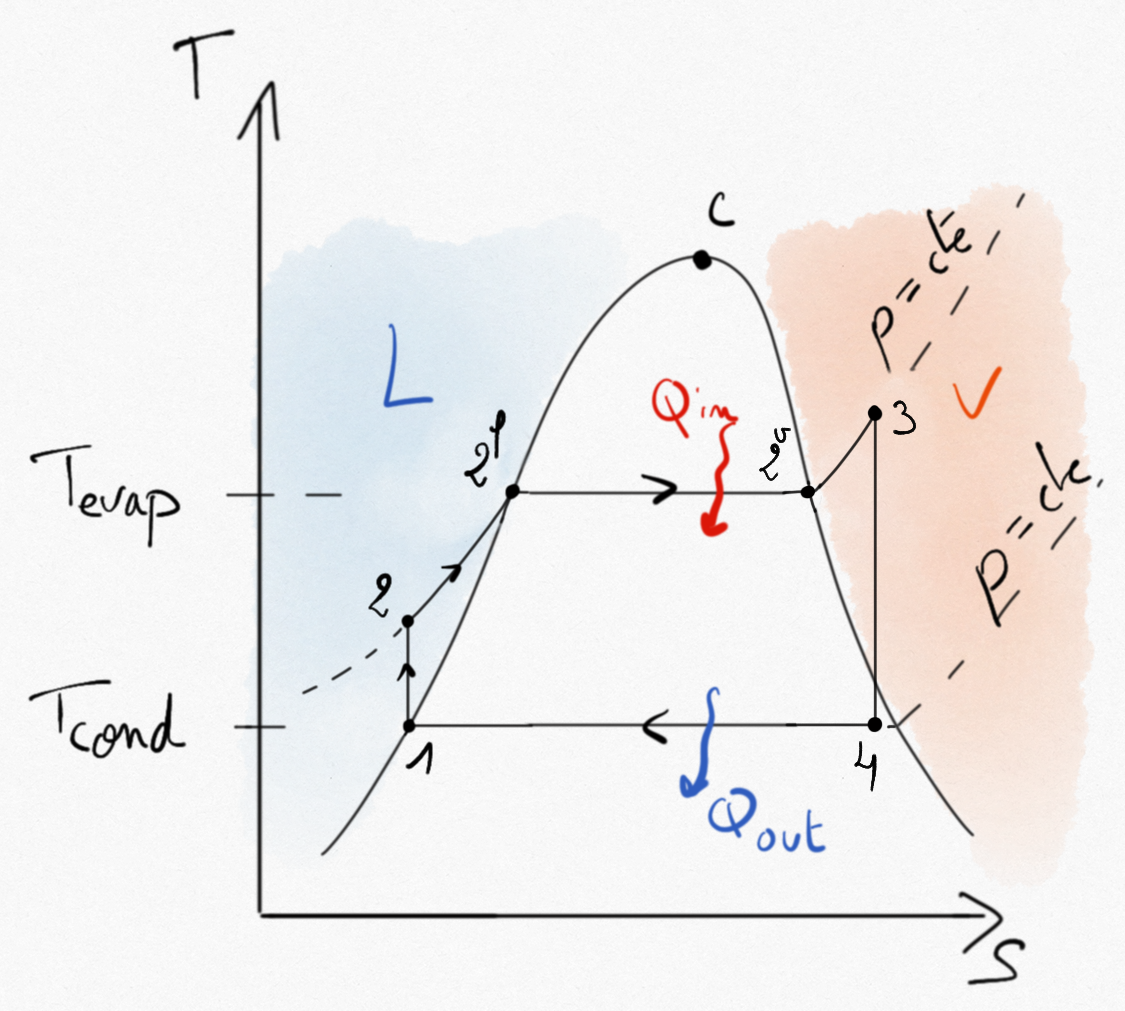 T
C
P = cte
L
Qin
V
2l
2v
3
Tevap
P = cte
2
Tcond
1
4
Qout
S